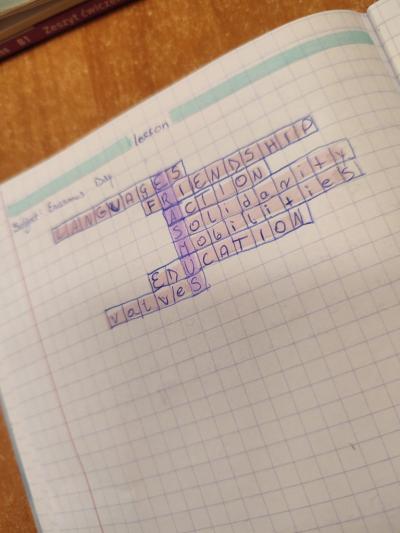 B1 Zeszyt ćwicze
lesson
Subject: Erasmus Day
LANGUAGES
FRIENDSHIP
ACTION
Solidarity
Mobilities
EDUCATION
values